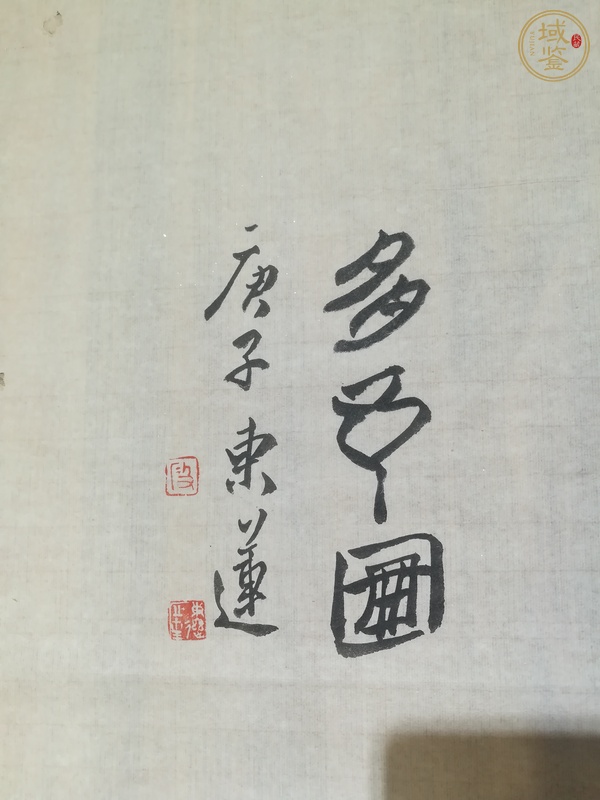 多子圖
庚子東蓮
域鉴
YUJIAN